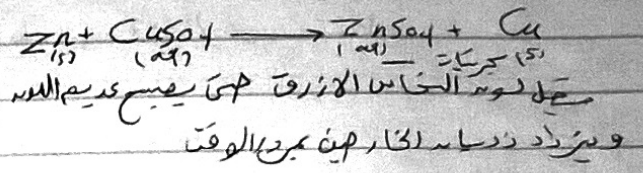 Zn + CuSo4 → ZnSo4 + Cu
(s) (aq) (aq) كبريتات (s)
يقل لون النحاس الازرق حتى يصبح عديم اللون
ويزداد ذوبان الخارصين بمرور الوقت